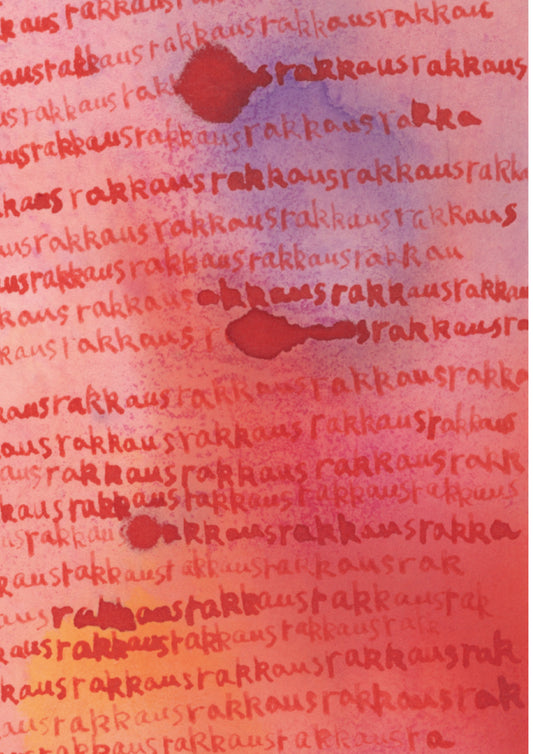 kausrakkausr
ausrakkausrakkausrakkausrakkau
usrakkausrakk srakkausrakkaus
ausrakkausrakkausrakkausrakka
kausrakkausrakkausrakkausrakka
ausrakkausrakkausrakkausrakkaus
usrakkausrakkausrakkausrakkau
kausrakkausakkausrakkausrakkau
kausrakkausr srakkausra
kausrakkausrakkausrakkausrakka
ausrakkausrakkausrakkausrakkaus
ausrakkausrakkausrakkausrakk
kausrakkausrakkausrakkausrakkaus
usrakkau akkausrakkausrakka
kausrakkausrakkausrakkausrak
ausrakkausrakkausrakkausrak
kausrakkausrakkausrakkausrak
kausrakkausrakkausrakkausrak
ausrakkausrakkausrakkausrak
rakkausrakkausrakkausra